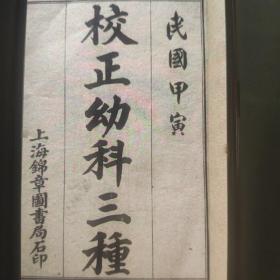 民國甲寅
校正幼科三種
上海錦章圖書局石印